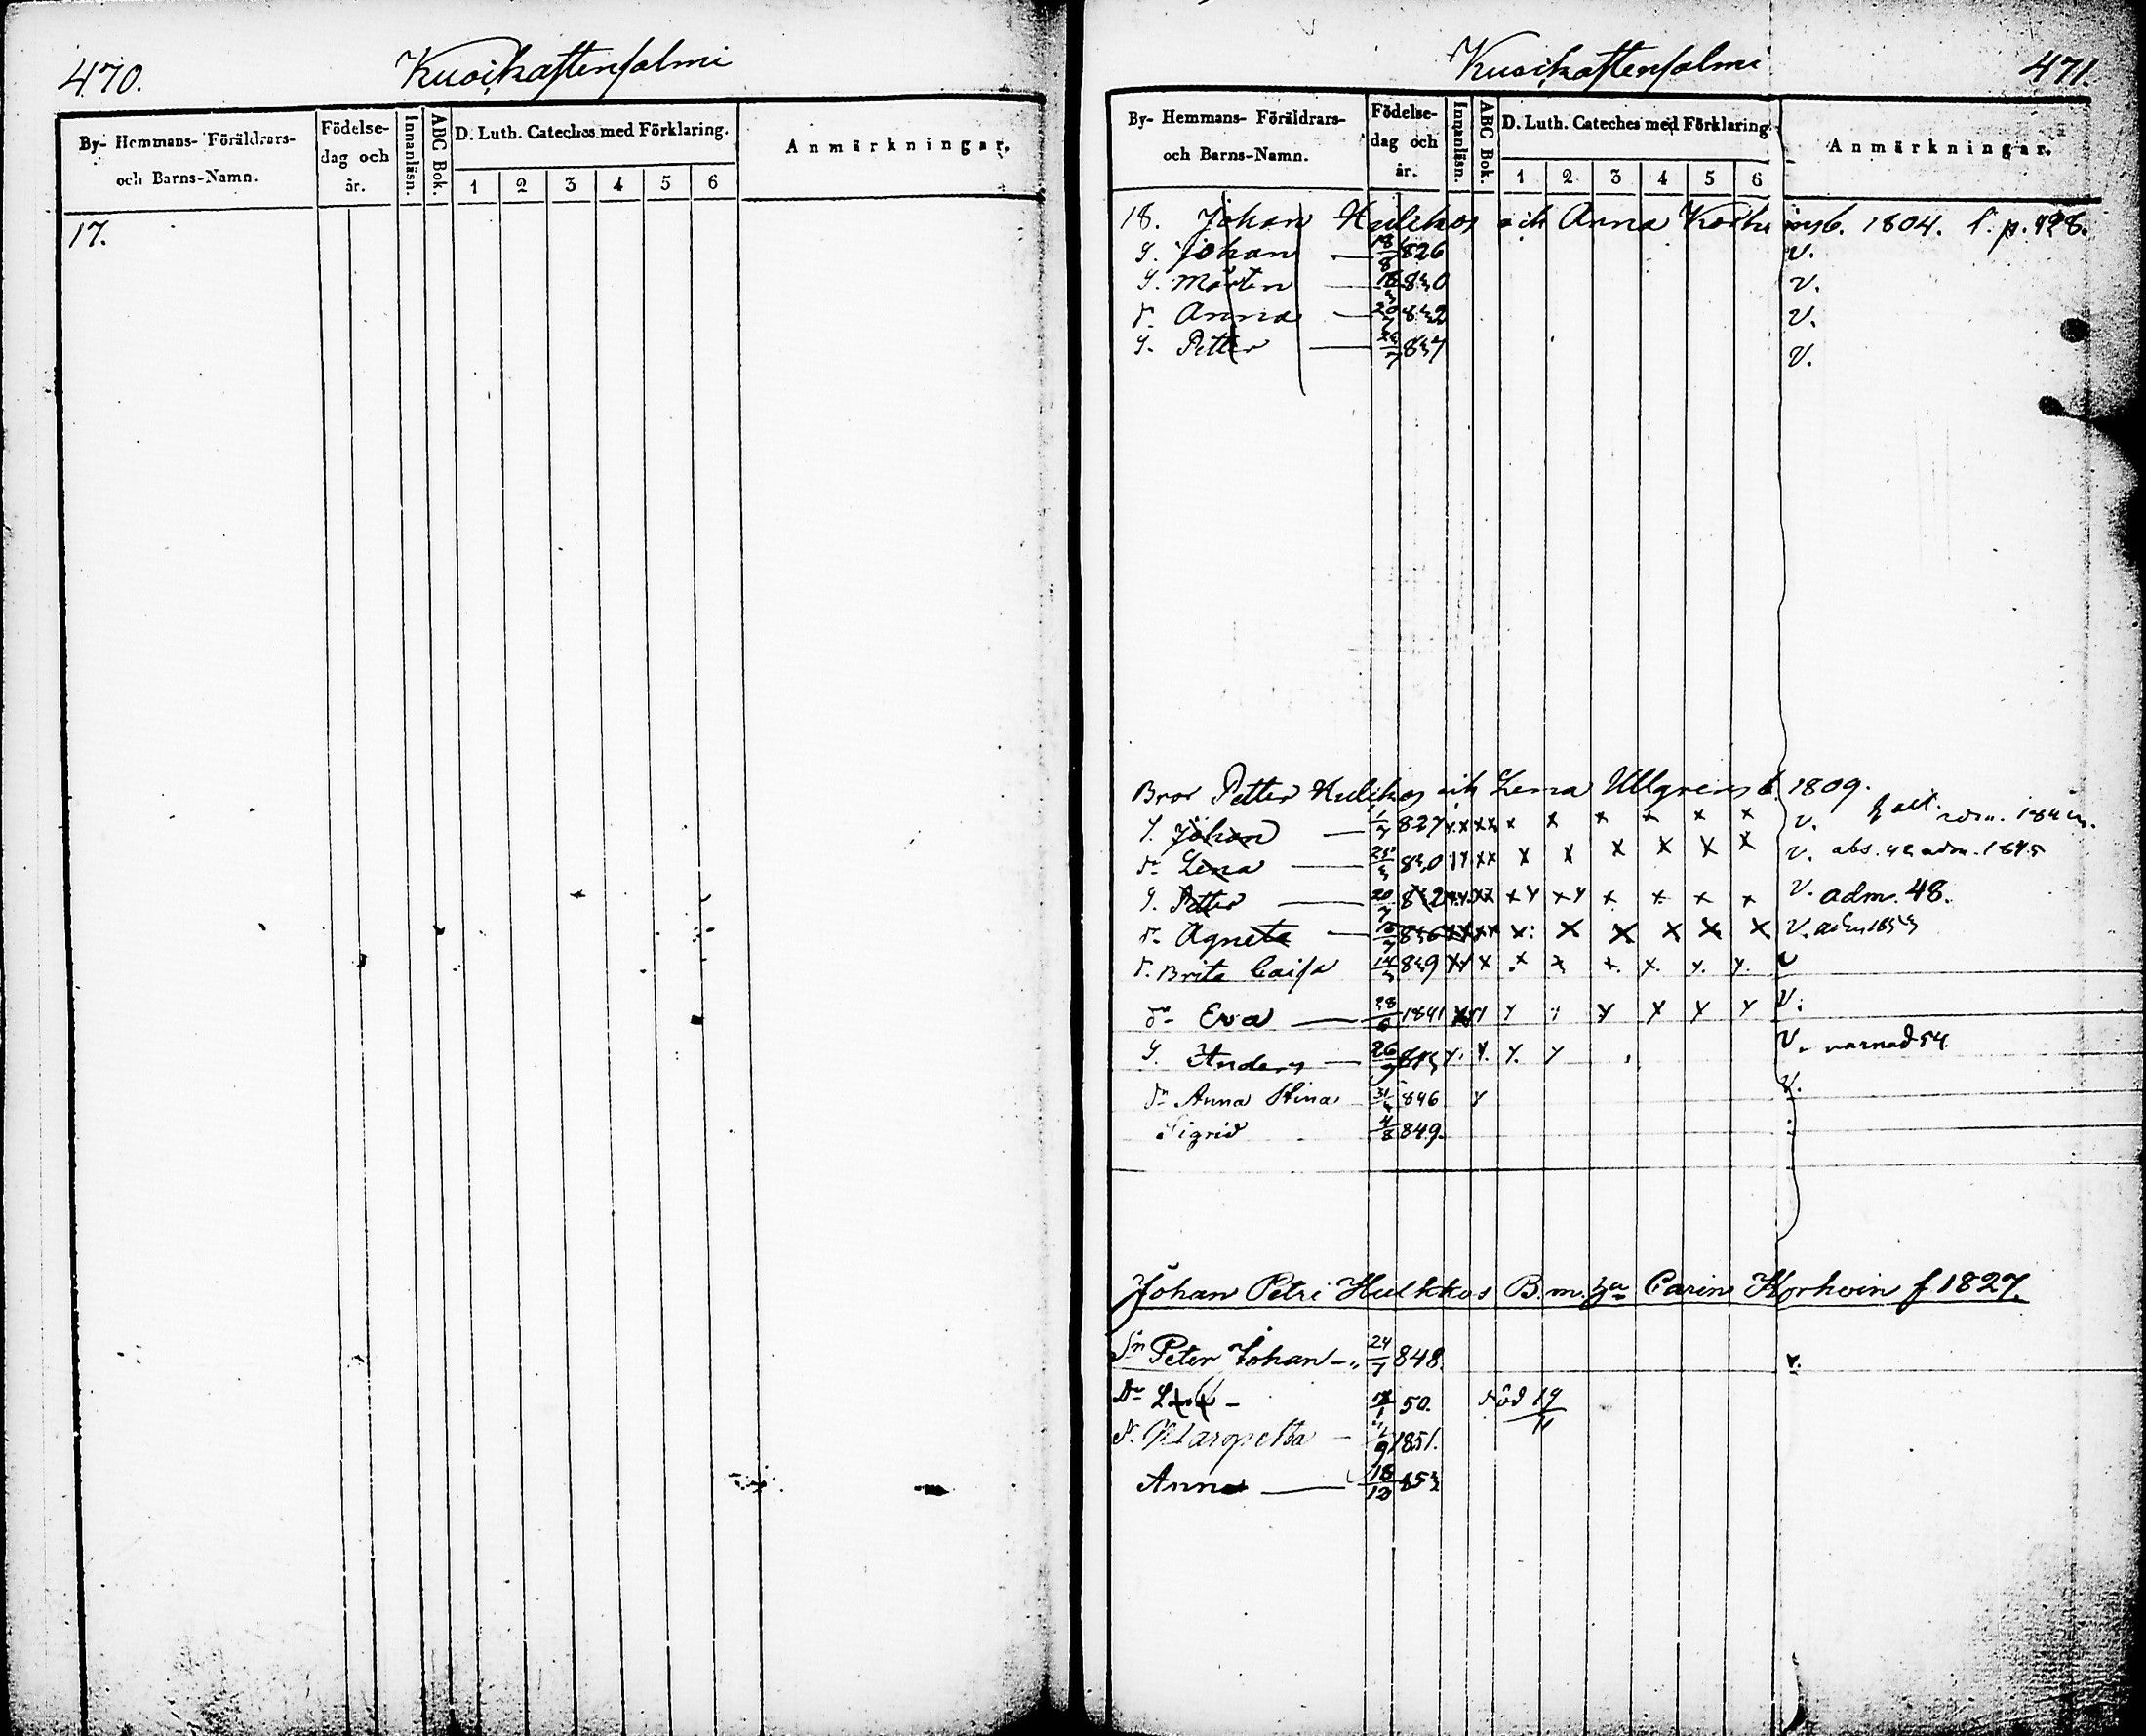 470. Kuoikattensalmi
By- Hemmans- Föräldrars- och Barns-Namn. Födelse- dag och år. Innanläsn. ABC Bok. D. Luth. Cateches med Förklaring. Anmärkningar.
1 2 3 4 5 6
17.
Kuoikattensalmi 471.
By- Hemmans- Föräldrars- och Barns-Namn. Födelse- dag och år. Innanläsn. ABC Bok. D. Luth. Cateches med Förklaring. Anmärkningar.
1 2 3 4 5 6
18. Johan Hulkkos och Anna 1804. l. p. 428.
S. Johan — 18/8 826 V.
S. Mårten — 830 V.
d. Anna — 20 832 V.
S. Petter — 7 837 V.
Bror Petter Hulkkos och Lena Ullgrens 1809.
S. Johan — 1/7 827 x x x x x x x x V.
dr Lena — 830 x x x x x x x x V. abs. adm. 1845
S. Petter — 20/7 832 x x x x x x x x V. adm. 48.
dr Agneta — 836 x x x x x x x x V.
d. Brita Caisa 14/3 839 x x x x x x x x V
dr Eva — 28/6 1841 x x x x x x V.
S. Anders — 26 843 V. varnad 54.
dr Anna Stina 31 846 V.
Sigrid 4/8 849.
Johan Petri Hulkkos B. m. Carin Korhoin f 1827.
Sn Peter Johan — 24/7 848. v.
Dr — 50. död 19/11
dr Margretha — 9 1851.
Anna — 18/12 853